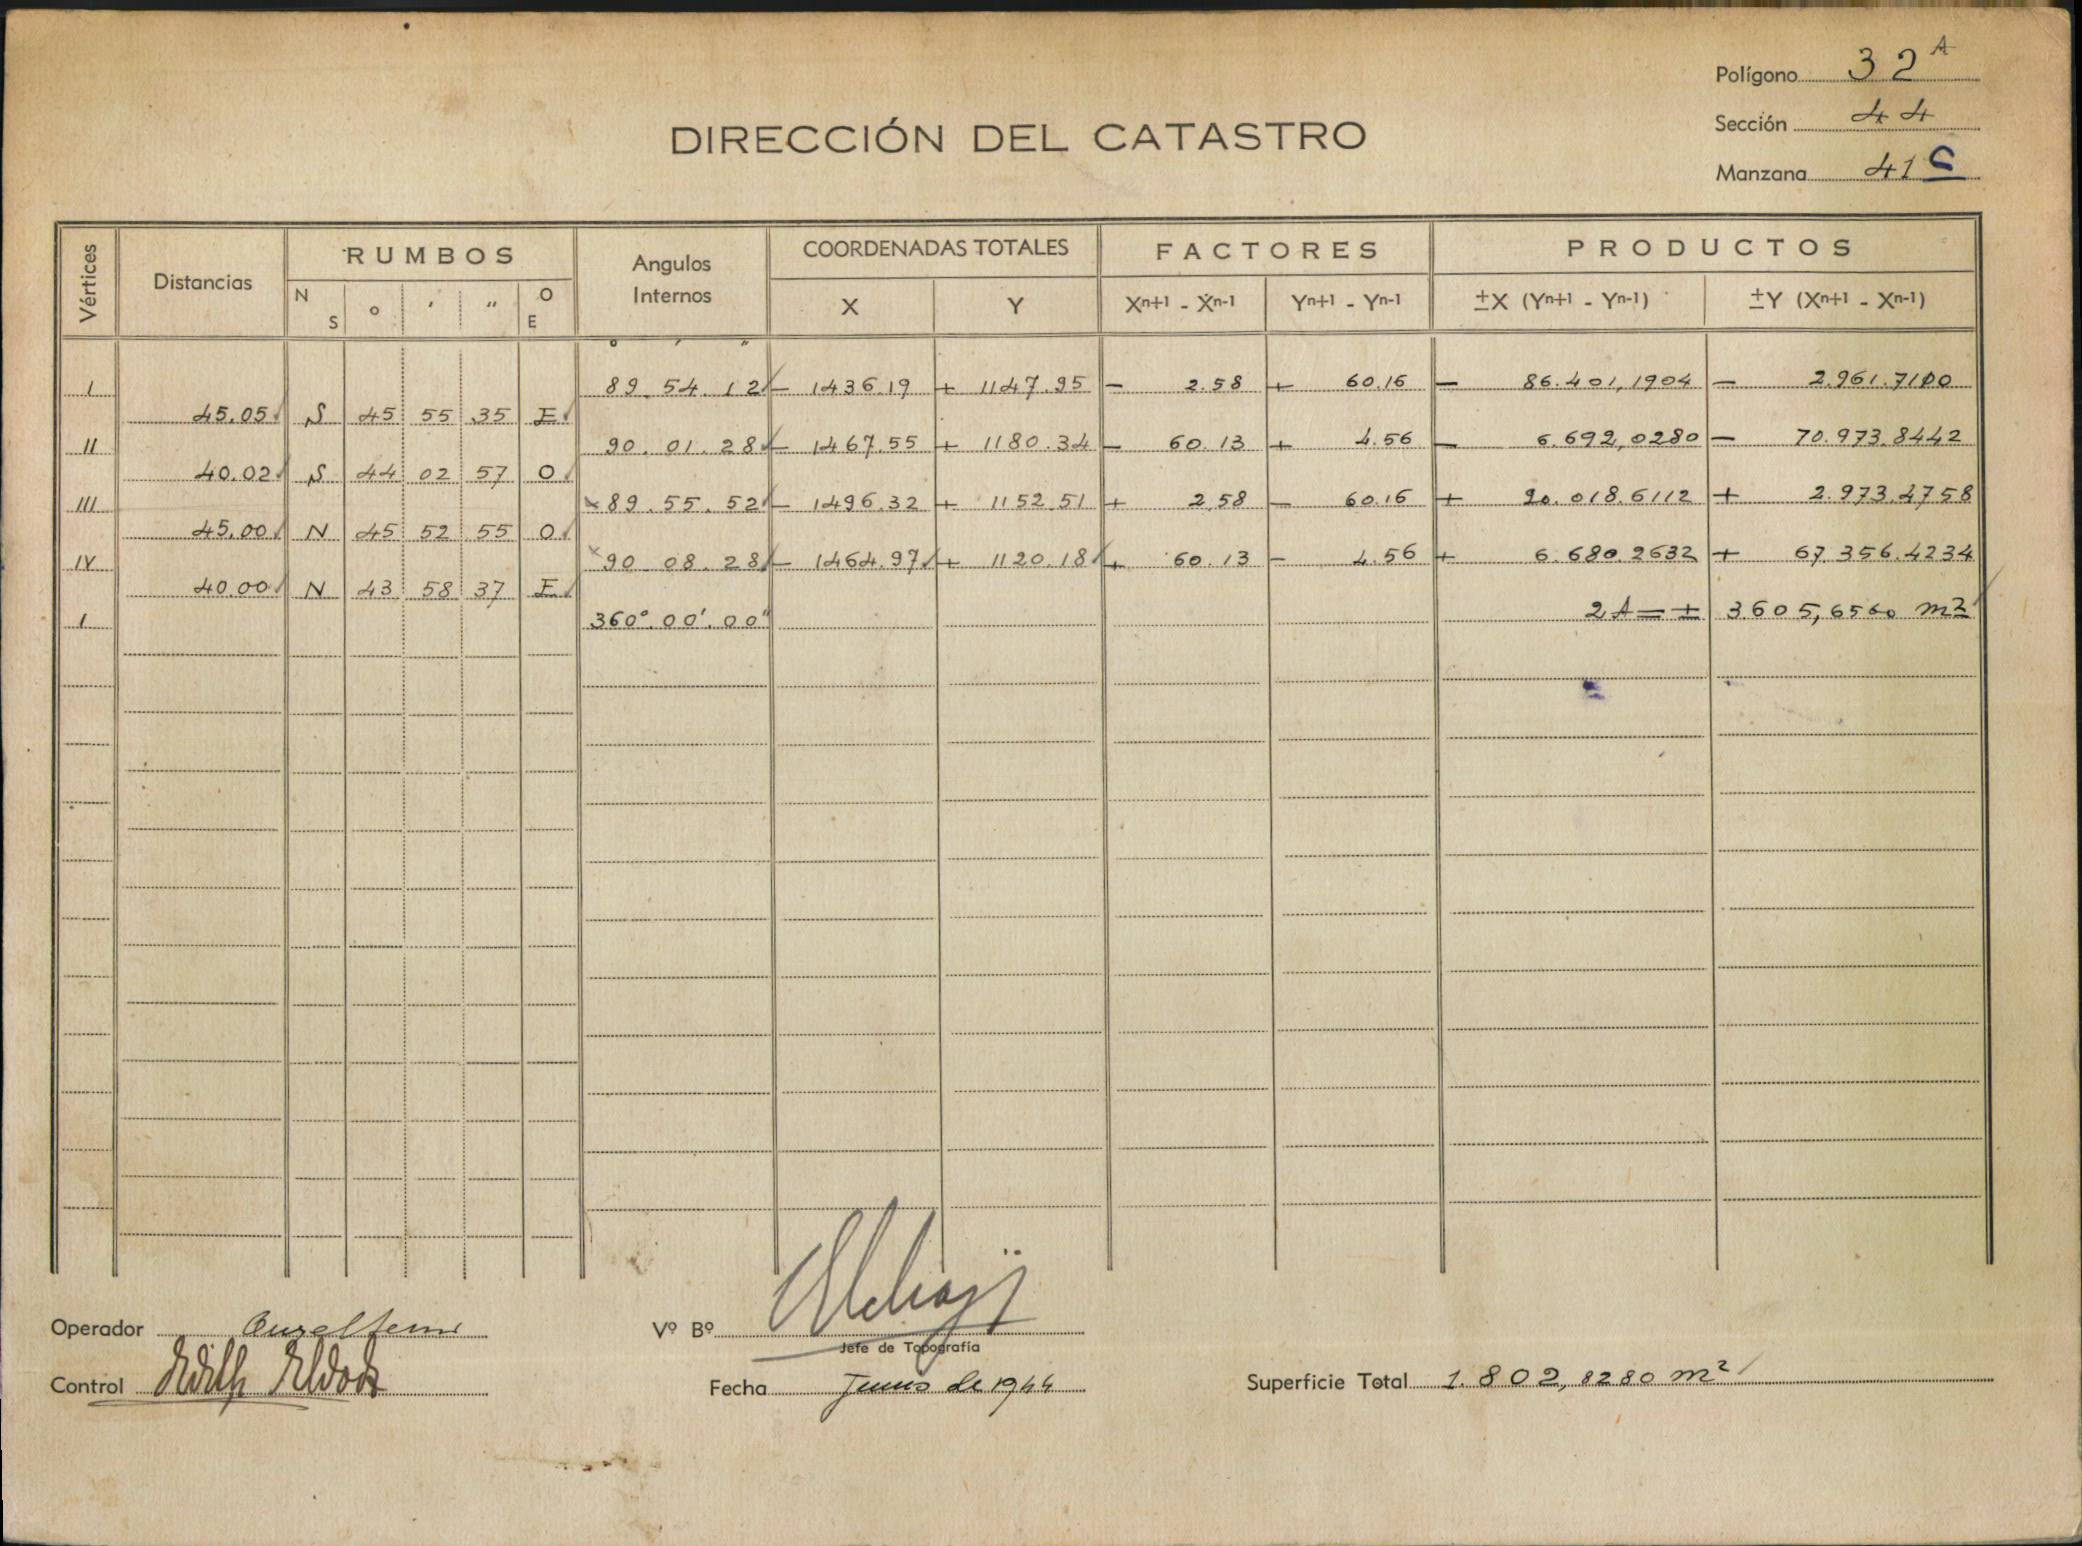 Polígono 32 A
Sección 44
Manzana 41 C
DIRECCIÓN DEL CATASTRO
Vértices Distancias RUMBOS Angulos Internos COORDENADAS TOTALES FACTORES PRODUCTOS
N S o ' " O E X Y Xn+1 - Xn-1 Yn+1 - Yn-1 ±X (Yn+1 - Yn-1) ±Y (Xn+1 - Xn-1)
o ' "
I 89. 54. 12 - 1436.19 + 1147.95 - 2.58 + 60.16 - 86.401,1904 - 2.961.7100
45.05 S 45 55 35 E
II 90. 01. 28 - 1467.55 + 1180.34 - 60.13 + 4.56 - 6.692,0280 - 70.973.8442
40.02 S 44 02 57 O
III 89. 55. 52 - 1496.32 + 1152.51 + 2.58 - 60.16 + 90.018.6112 + 2.973.4758
45.00 N 45 52 55 O
IV 90 08. 28 - 1464.97 + 1120.18 + 60.13 - 4.56 + 6.680.2632 + 67.356.4234
40.00 N 43 58 37 E
I 360°. 00'. 00" 2A = + 3.605,6560 m2
Operador
Vº Bº
Jefe de Topografía
Control Edith
Fecha Junio de 1944
Superficie Total 1.802,8280 m2